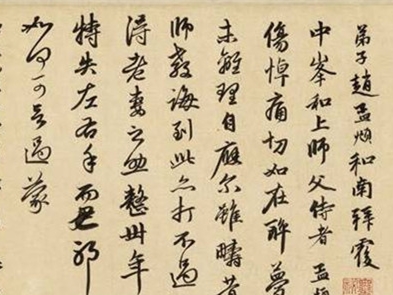 弟子趙孟頫和南拜覆
中峯和上師父侍者孟頫
傷悼痛切如在醉夢
未離理自應爾雖疇昔
師教誨到此亦打不過
得老妻之助整卅年
特失左右手而已耶
如何可言過蒙